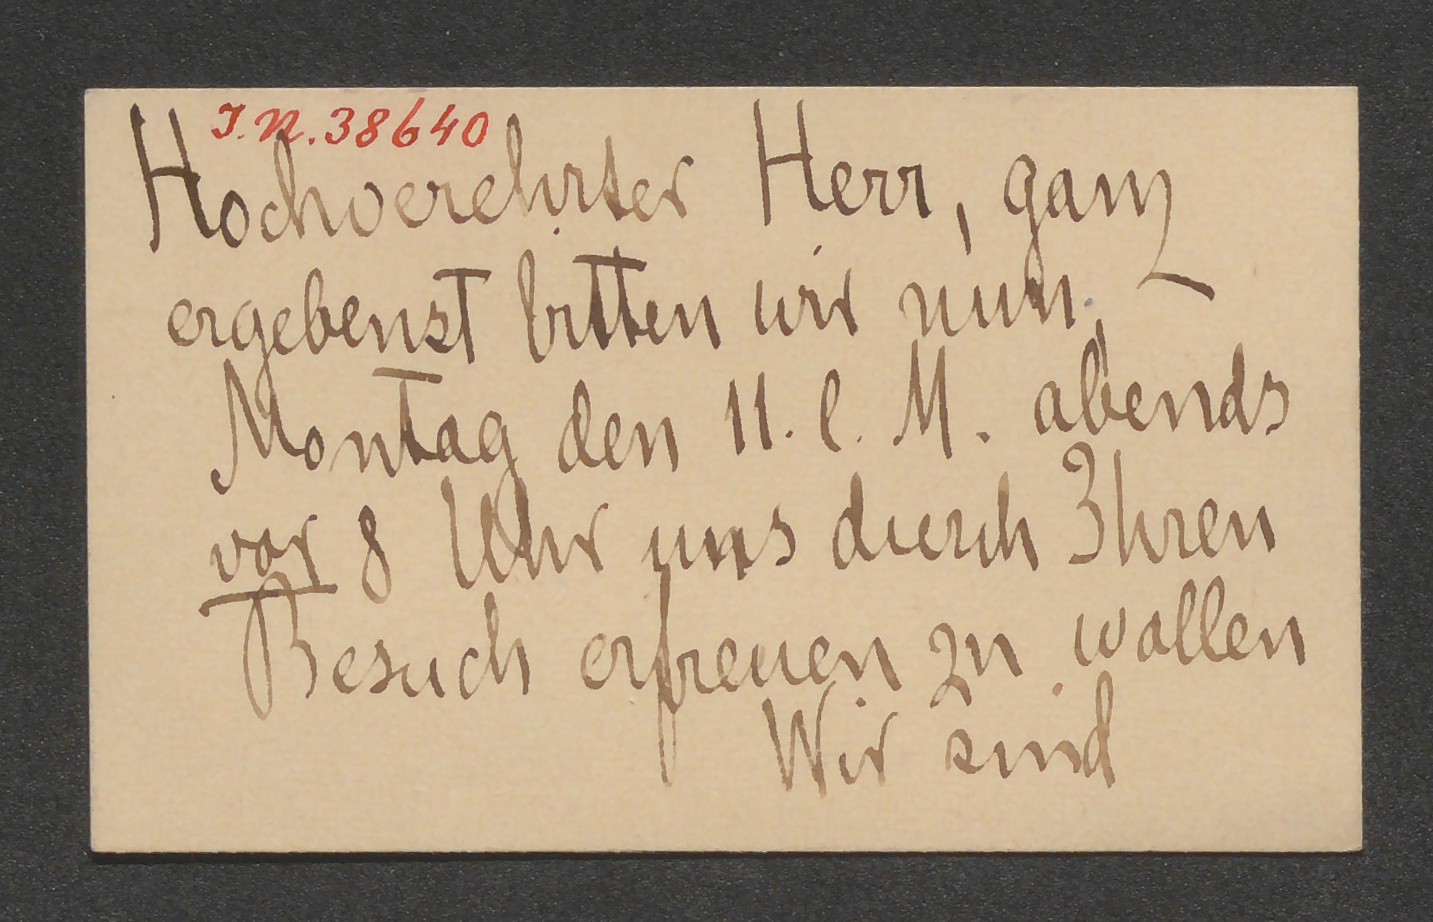 I.N.38640
Hochverehrter Herr, ganz
ergebenst bitten wir nun,
Montag den 11. l. M. abends
vor 8 Uhr uns durch Ihren
Besuch erfreuen zu wollen
Wir sind